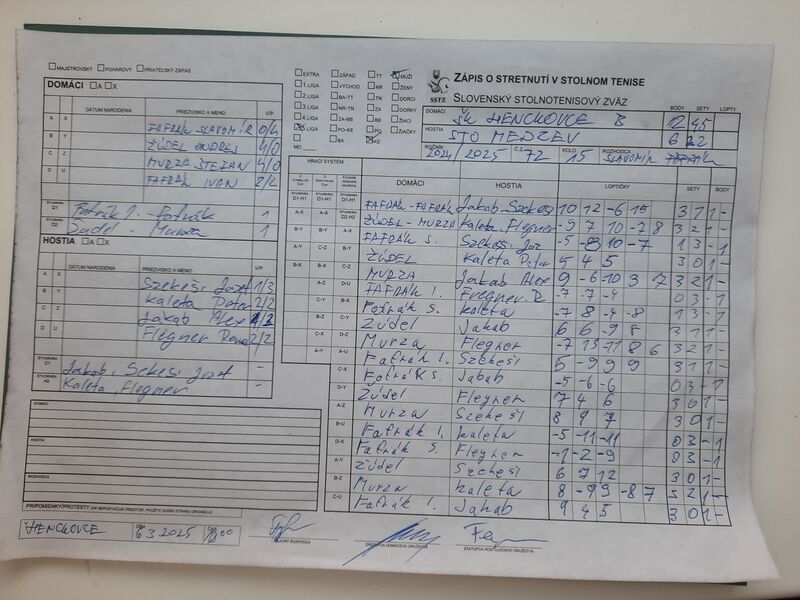 MAJSTROVSKÝ POHÁROVÝ PRIATEĽSKÝ ZÁPAS
DOMÁCI A X
DÁTUM NARODENIA PRIEZVISKO A MENO V/P
A X FAFRÁK SLAVOMÍR 0/4
B Y ŽÚDEL ONDREJ 4/0
C Z MURZA ŠTEFAN 4/0
D U FAFRÁK IVAN 2/2
ŠTVORHRA D1 Fafrák I. - Fafrák 1
Žúdel - Murza 1
HOSTIA A X
DÁTUM NARODENIA PRIEZVISKO A MENO V/P
A X Szekeši Jozef 1/3
B Y Kaleta Peter 2/2
C Z Jakab Alex
D U Flegner 2/2
Jakab, Szekeši Jozef -
Kaleta, Flegner -
DOMÁCI
HOSTIA
ROZHODCA
PRIPOMIENKY/PROTESTY
HENCKOVCE 6.3.2025
HLAVNÝ ROZHODCA
ZÁSTUPCA DOMÁCEHO DRUŽSTVA
ZÁSTUPCA HOSŤUJÚCEHO DRUŽSTVA
EXTRA ZÁPAD TT MUŽI
1. LIGA VÝCHOD NR ŽENY
2. LIGA BA-TT TN DORCI
3. LIGA NR-TN ZA DORKY
4. LIGA ZA-BB BB ŽIACI
5. LIGA PO-KE PO ŽIAČKY
BA KE
MO
SSTZ
ZÁPIS O STRETNUTÍ V STOLNOM TENISE
SLOVENSKÝ STOLNOTENISOVÝ ZVÄZ
BODY SETY LOPTY
DOMÁCI ŠK HENCKOVCE B 12 45
HOSTIA STO MEDZEV 6 22
ROČNÍK 2024/2025 Č.Z. 72 KOLO 15 ROZHODCA SLAVOMÍR FAFRÁK
HRACÍ SYSTÉM DOMÁCI HOSTIA LOPTIČKY SETY BODY
FAFRÁK - FAFRÁK Jakab, Szekeši 10 12 -6 15 3 1 1 -
ŽÚDEL - MURZA Kaleta, Flegner -9 7 10 -7 8 3 2 1 -
FAFRÁK S. Szekeši Joz -5 -8 10 -7 1 3 - 1
ŽÚDEL Kaleta Peter 5 4 5 3 0 1 -
MURZA Jakab Alex 9 -6 -10 3 7 3 2 1 -
FAFRÁK I. Flegner R -7 -7 -4 0 3 - 1
Fafrák S. Kaleta -7 8 -4 -8 1 3 - 1
Žúdel Jakab 6 6 -9 8 3 1 1 -
Murza Flegner -7 13 -11 8 6 3 2 1 -
Fafrák I. Szekeši 5 -9 9 9 3 1 1 -
Fafrák S. Jakab -5 -6 -6 0 3 - 1
Žúdel Flegner 7 4 6 3 0 1 -
Murza Szekeši 8 9 7 3 0 1 -
Fafrák I. Kaleta -5 -11 -11 0 3 - 1
Fafrák S. Flegner -1 -2 -9 0 3 - 1
Žúdel Szekeši 6 7 12 3 0 1 -
Murza Kaleta 8 -9 9 -8 7 3 2 1 -
Fafrák I. Jakab 9 4 5 3 0 1 -